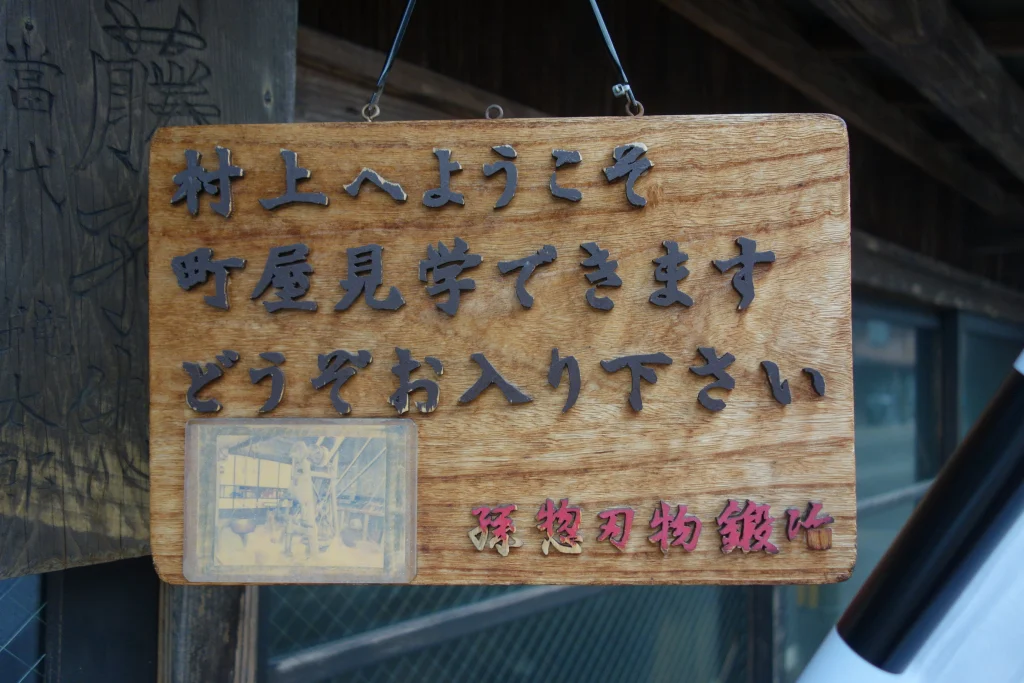 村上へようこそ
町屋見学できます
どうぞお入り下さい
孫惣刃物鍛冶
當代
藤